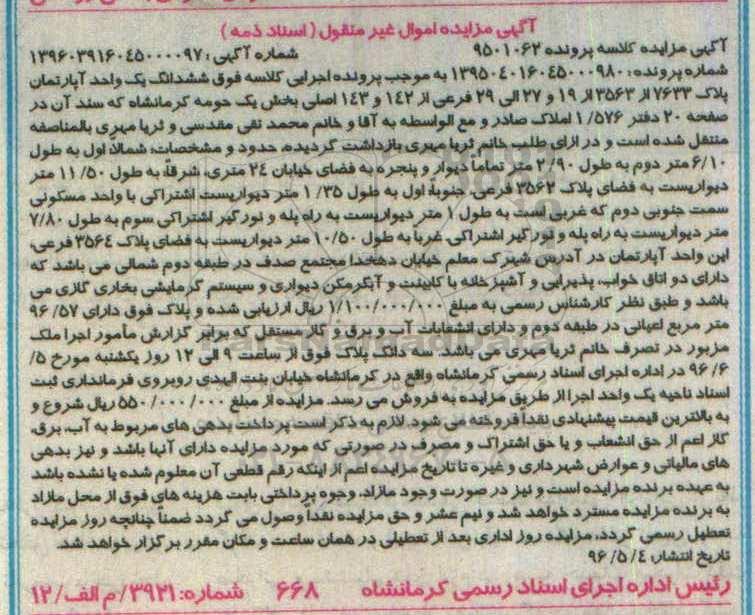 آگهی مزایده اموال غیر منقول (اسناد ذمه)
آگهی مزایده کلاسه پرونده ۹۵۰۱۰۶۲ شماره آگهی: ۱۳۹۶۰۳۹۱۶۰۴۵۰۰۰۰۹۷
شماره پرونده: ۱۳۹۵۰۴۰۱۶۰۴۵۰۰۰۹۸۰ به موجب پرونده اجرایی کلاسه فوق ششدانگ یک واحد آپارتمان
پلاک ۷۶۳۳ از ۳۵۶۳ از ۱۹ و ۲۷ الی ۲۹ فرعی از ۱۴۲ و ۱۴۳ اصلی بخش یک حومه کرمانشاه که سند آن در
صفحه ۲۰ دفتر ۱/۵۷۶ املاک صادر و مع الواسطه به آقا و خانم محمد تقی مقدسی و ثریا مهری بالمناصفه
منتقل شده است و در ازای طلب خانم ثریا مهری بازداشت گردیده، حدود و مشخصات: شمالا: اول به طول
۶/۱۰ متر دوم به طول ۲/۹۰ متر تماماً دیوار و پنجره به فضای خیابان ۲۴ متری، شرقاً: به طول ۱۱/۵۰ متر
دیواریست به فضای پلاک ۳۵۶۲ فرعی، جنوباً: اول به طول ۱/۳۵ متر دیواریست اشتراکی با واحد مسکونی
سمت جنوبی دوم که غربی است به طول ۱ متر دیواریست به راه پله و نورگیر اشتراکی سوم به طول ۷/۸۰
متر دیواریست به راه پله و نورگیر اشتراکی، غرباً به طول ۱۰/۵۰ متر دیواریست به فضای پلاک ۳۵۶۴ فرعی،
این واحد آپارتمان در آدرس شهرک معلم خیابان دهخدا مجتمع صدف در طبقه دوم شمالی می باشد که
دارای دو اتاق خواب، پذیرایی و آشپزخانه با کابینت و آبگرمکن دیواری و سیستم گرمایشی بخاری گازی می
باشد و طبق نظر کارشناس رسمی به مبلغ ۱/۱۰۰/۰۰۰/۰۰۰ ریال ارزیابی شده و پلاک فوق دارای ۹۶/۵۷
متر مربع اعیانی در طبقه دوم و دارای انشعابات آب و برق و گاز مستقل که برابر گزارش مأمور اجرا ملک
مزبور در تصرف خانم ثریا مهری می باشد. سه دانگ پلاک فوق از ساعت ۹ الی ۱۲ روز یکشنبه مورخ ۵/
۹۶/۶ در اداره اجرای اسناد رسمی کرمانشاه واقع در کرمانشاه خیابان بنت الهدی روبروی فرمانداری ثبت
اسناد ناحیه یک واحد اجرا از طریق مزایده به فروش می رسد. مزایده از مبلغ ۵۵۰/۰۰۰/۰۰۰ ریال شروع و
به بالاترین قیمت پیشنهادی نقداً فروخته می شود. لازم به ذکر است پرداخت بدهی های مربوط به آب، برق،
گاز اعم از حق انشعاب و یا حق اشتراک و مصرف در صورتی که مورد مزایده دارای آنها باشد و نیز بدهی
های مالیاتی و عوارض شهرداری و غیره تا تاریخ مزایده اعم از اینکه رقم قطعی آن معلوم شده یا نشده باشد
به عهده برنده مزایده است و نیز در صورت وجود مازاد، وجوه پرداختی بابت هزینه های فوق از محل مازاد
به برنده مزایده مسترد خواهد شد و نیم عشر و حق مزایده نقداً وصول می گردد ضمناً چنانچه روز مزایده
تعطیل رسمی گردد، مزایده روز اداری بعد از تعطیلی در همان ساعت و مکان مقرر برگزار خواهد شد.
تاریخ انتشار: ۹۶/۵/۴
رئیس اداره اجرای اسناد رسمی کرمانشاه ۶۶۸ شماره: ۳۹۲۱/م الف/۱۲